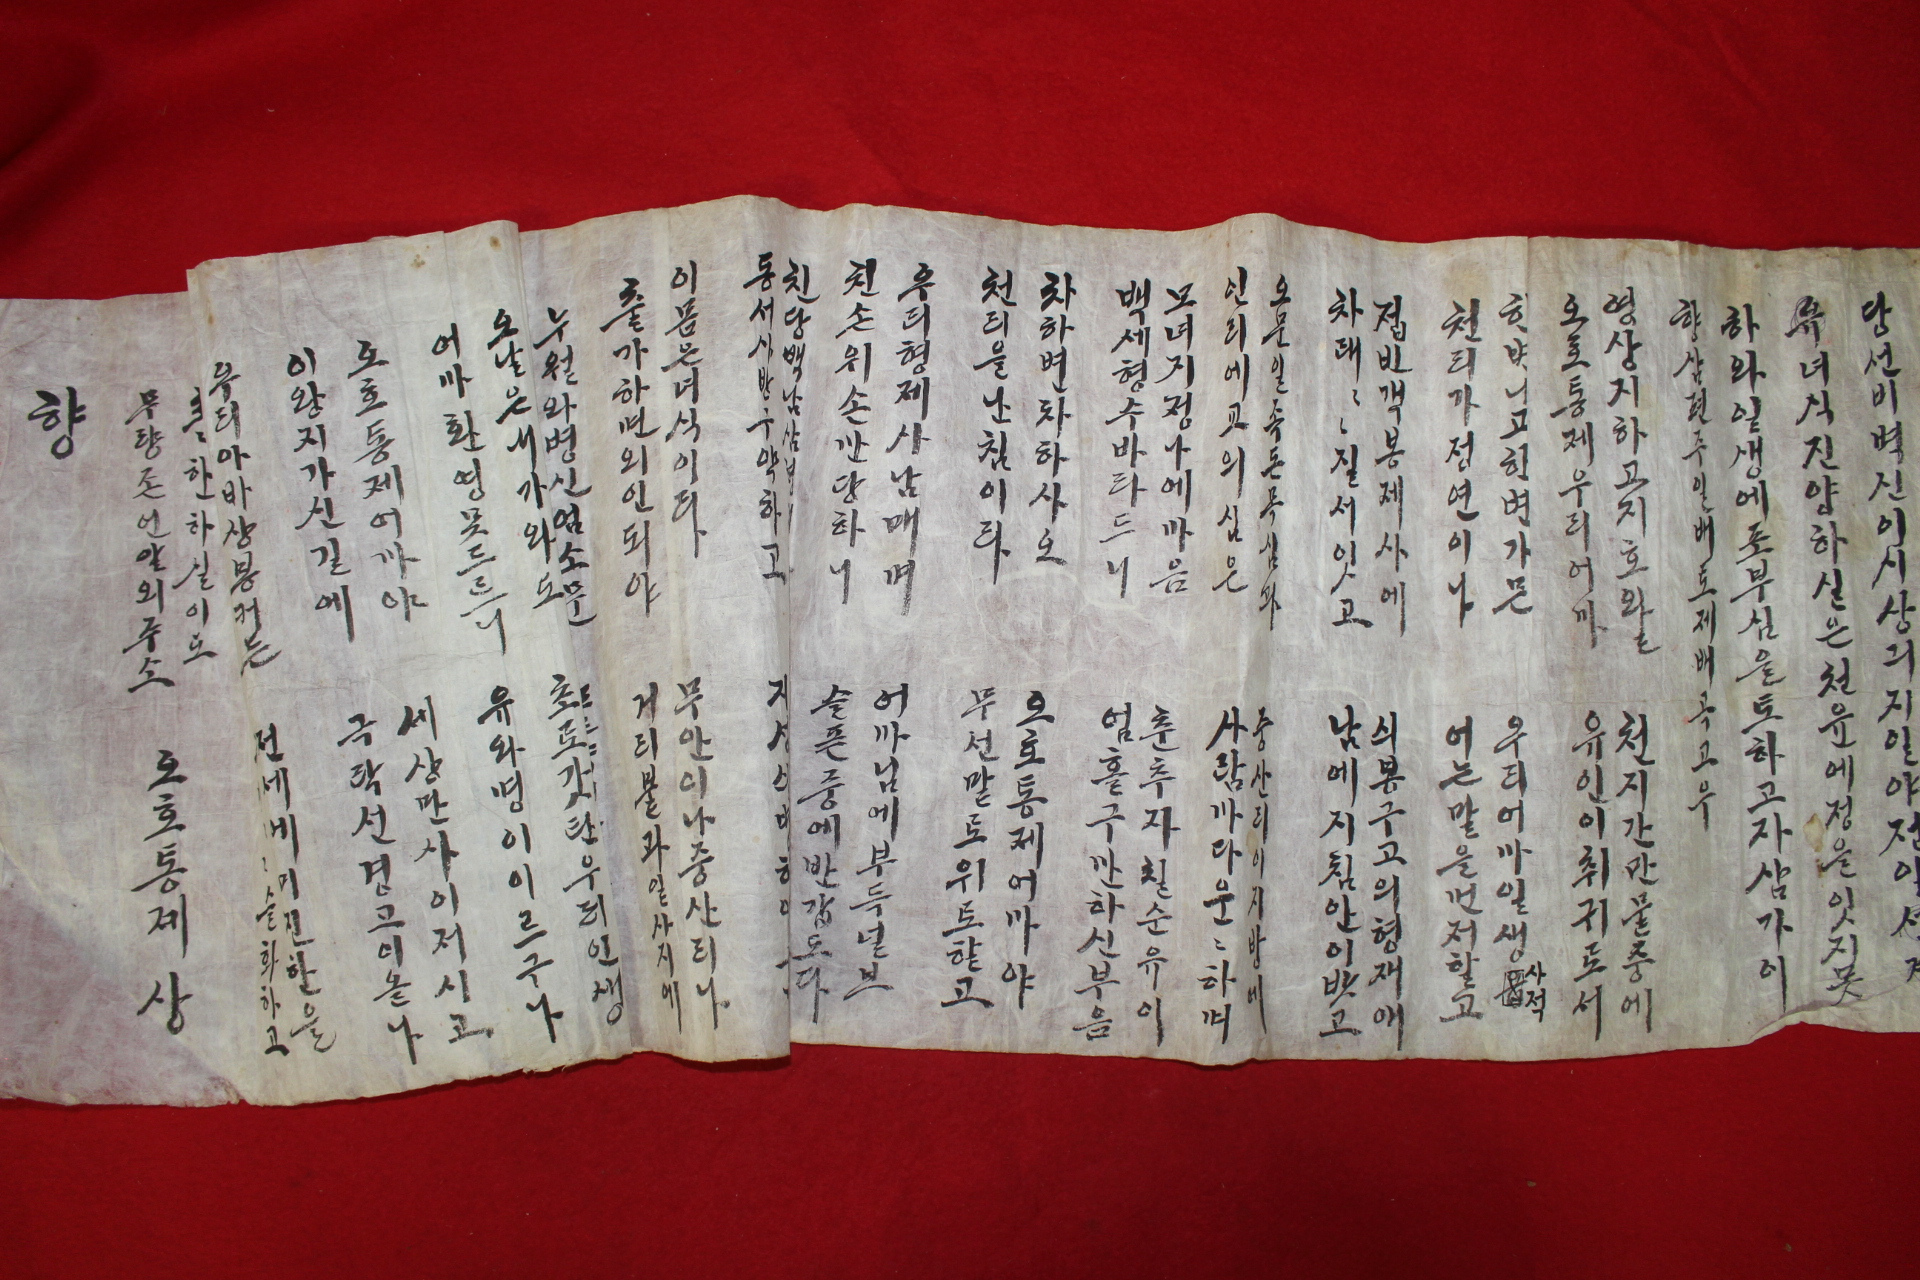 당선비벽진이시상긔지일야
류녀식진양하실은천유에정을잇지못
하와일생에포부심을토하고자삼가이
향삼편주일배토제배곡고우
영상지하고지호와
오호통제우리어까
천지간만물중에
유인이취귀도서
고친변가믄
천리가정연이나
우리어까일생 사적
어는말을먼저할고
접빈객봉제사에
차대〻〻질서잇고
싀봉구고의형재애
남에지침안이밧고
오문일족돈목심과
인리에교의심은
중산리이지방에
사람까다운〻하며
모녀지정나에마음
백세형수바라드니
춘추자칠순유이
엄홀구까하신부음
차하변차하사오
천리을난침이라
오호통제어까야
무선말로위로할고
우리형제사남매며
친손위손깐당하니
어까님에부득널브
슬픈중에반갑도다
친당백남삼
통서사방구약하고
이몸은녀식이라
출가하면외인되야
무안이나중산리나
거리불과일사지에
누월와병신엄소문
오날은서가와도
어까환영못드르니
초로갓탄우리인생
유와명이이르구나
오호통제어까야
이왕지가신길에
세상만사이저시고
극락선경고이온나
우리아바상봉커든
흔〻한하실이요
전세비〻미진한을
슬화하고
무량존언알외주소
오호통제 상
향